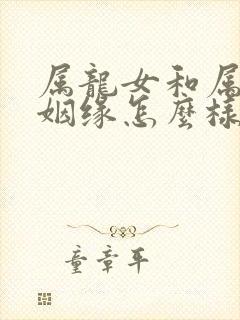 属龍女和属
姻缘怎麼樣
童章平